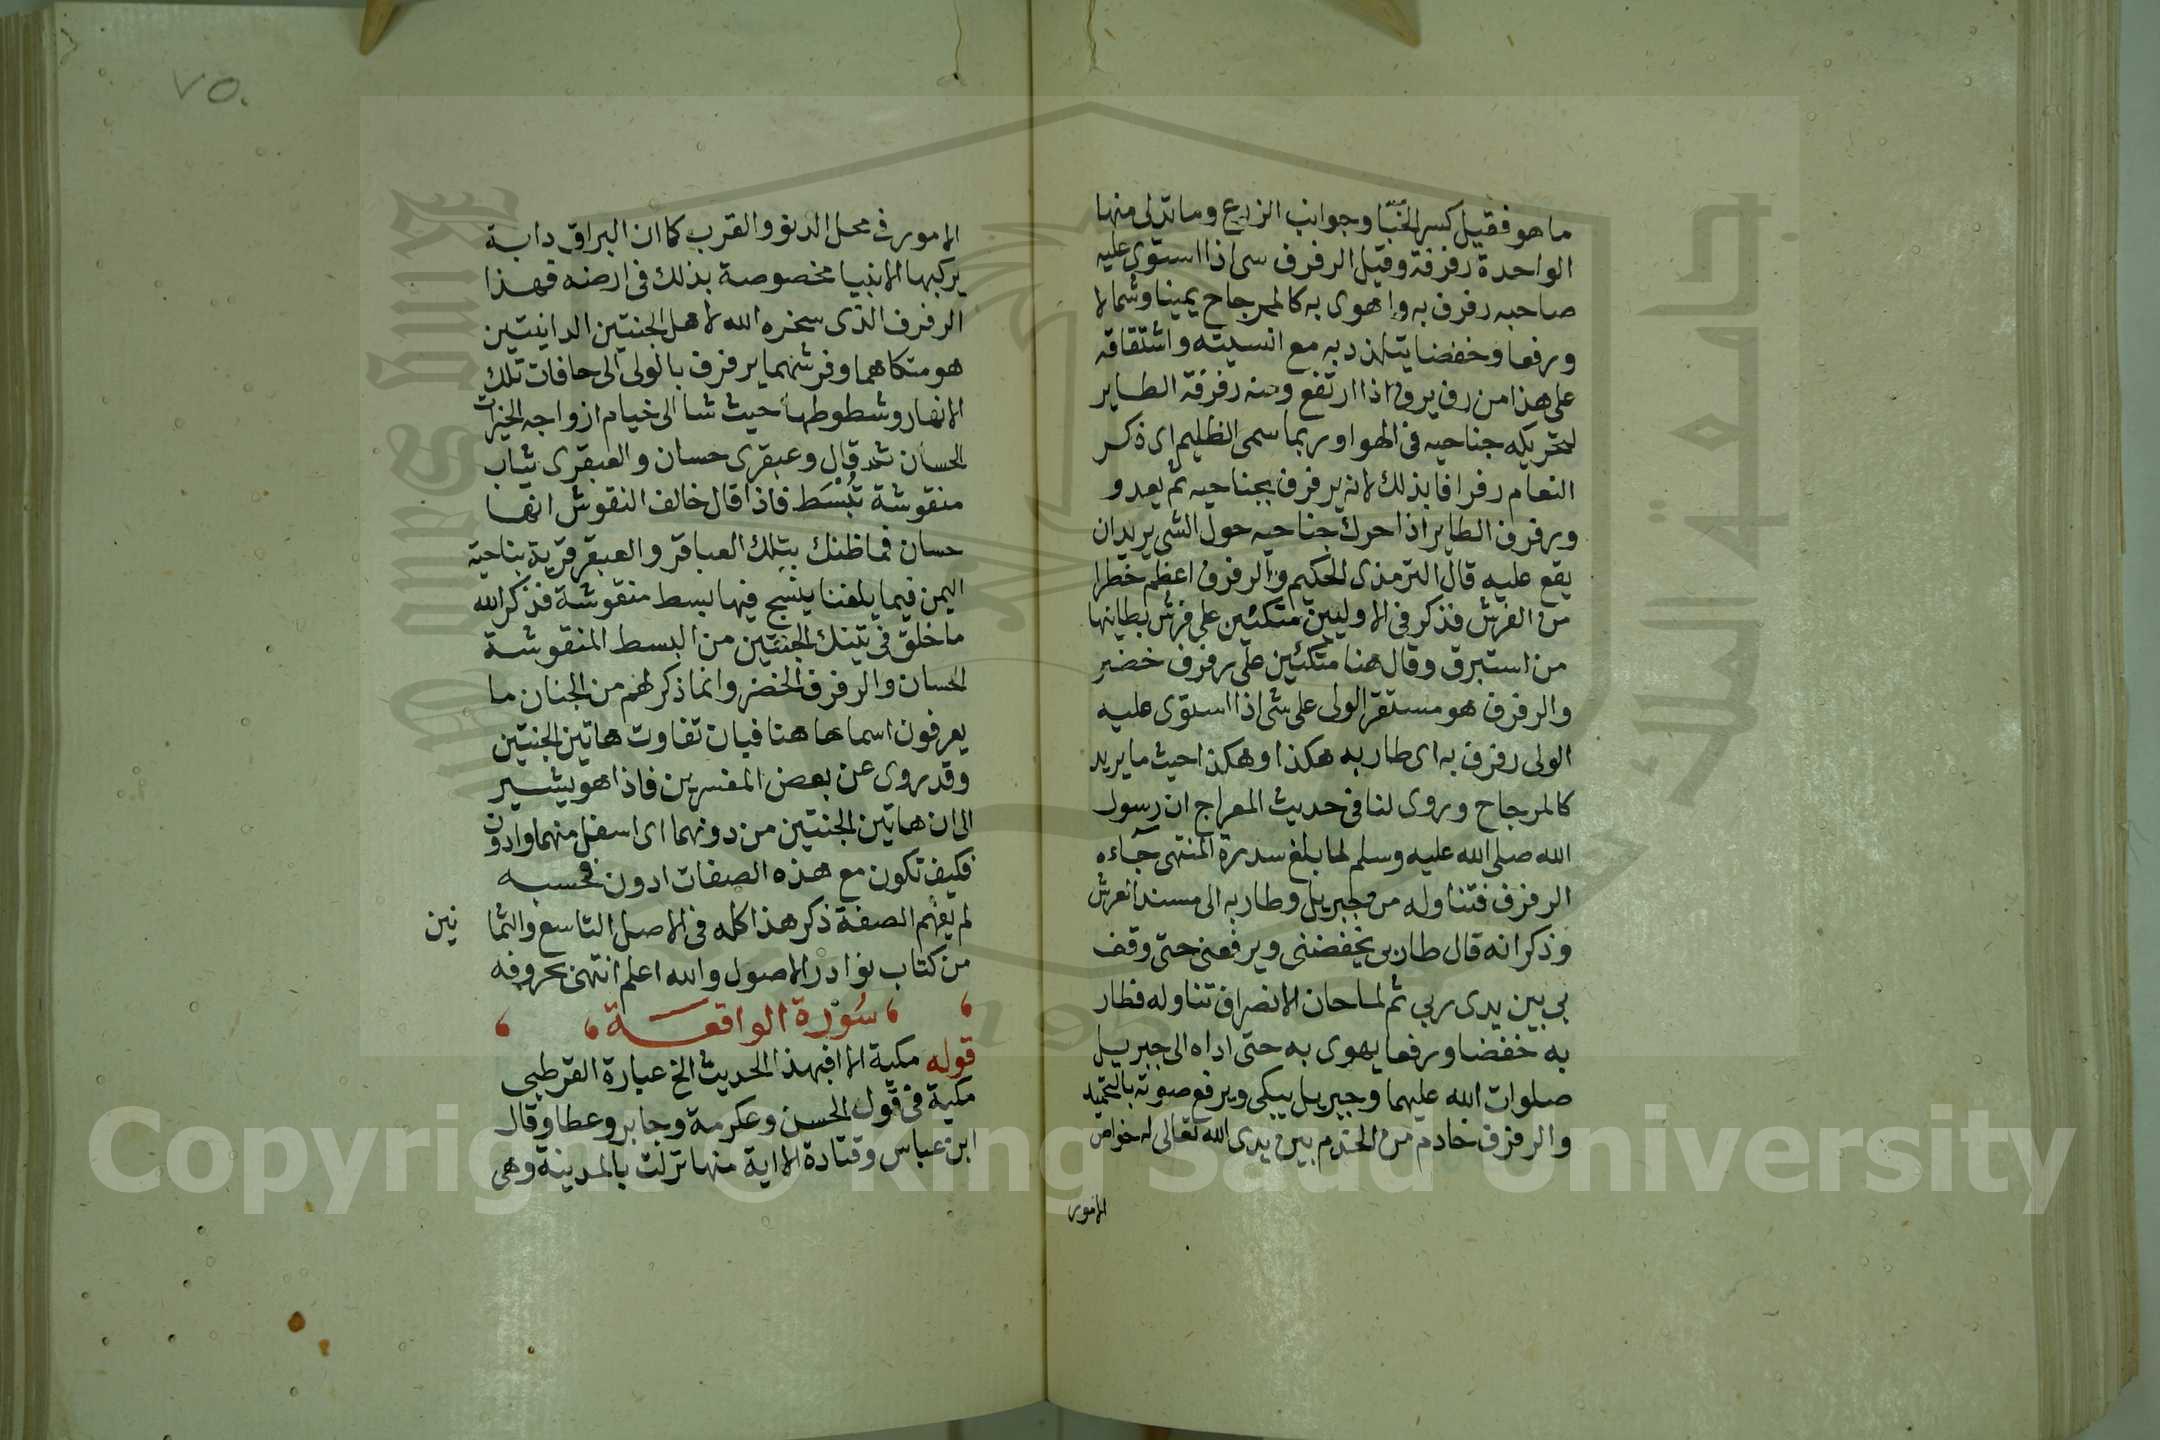 ما هو فقيل كسر الخبا وجوانب الدرع وما تدلى منها
الواحدة رفرفة وقيل الرفرف شى اذا استوى عليه
صاحبه رفرف به واهوى به كالمرجاح يمينا وشمالا
ورفعا وخفضا يتلذذ به مع انسيته واشتقاقه
على هذا من رف يرف اذا ارتفع ومنه رفرفة الطاير
لتحريكه جناحيه فى الهوا وربما سمى الظليم اى ذكر
النعام رفرافا بذلك لانه يرفرف بجناحيه ثم يعدو
ورفرف الطاير اذا حرك جناحيه حول الشى يريد ان
يقع عليه قال الترمذى الحكيم والرفرف اعظم خطرا
من الفرش فذكر فى الاوليين متكئين على فرش بطاينها
من استبرق وقال هنا متكئين على رفرف خضر
والرفرف هو مستقر الولى على شى اذا استوى عليه
الولى رفرف به اى طار به هكذا وهكذا حيث ما يريد
كالمرجاح وروى لنا فى حديث المعراج ان رسول
الله صلى الله عليه وسلم لما بلغ سدرة المنتهى جاءه
الرفرف فتناوله من جبريل وطار به الى مسند العرش
وذكر انه قال طار بى يخفضنى ويرفعنى حتى وقف
بى بين يدى ربى ثم لما حان الانصراف تناوله فطار
به خفضا ورفعا يهوى به حتى اداه الى جبريل
صلوات الله عليهما وجبريل يبكى ويرفع صوته بالتحميد
والرفرف خادم من الخدم بين يدى الله تعالى له خواص
الامور
٧٥٠
الامور فى محل الدنو والقرب كما ان البراق دابة
يركبها الانبيا مخصوصة بذلك فى ارضه فهذا
الرفرف الذى سخره الله لاهل الجنتين الدانيتين
هو متكاهما وفرشهما يرفرف بالولى الى حافات تلك
الانهار وشطوطها حيث شا الى خيام ازواجه الخيرات
الحسان ثم قال وعبقرى حسان والعبقرى ثياب
منقوشة تبسط فاذا قال خالف النقوش انها
حسان فما ظنك بتلك العباقر والعبقر قرية بناحية
اليمن فيما يلغنا ينسج فيها بسط منقوشة فذكر الله
ما خلق فى تينك الجنتين من البسط المنقوشة
الحسان والرفرف الخضر وانما ذكر لهم من الجنان ما
يعرفون اسماها هنا فبان تفاوت هاتين الجنتين
وقد روى عن بعض المفسرين فاذا هو يشير
الى ان هاتين الجنتين من دونهما اى اسفل منهما وادون
فكيف تكون مع هذه الصفات ادون فحسبه
لم يفهم الصفة ذكر هذا كله فى الاصل التاسع والثما نين
من كتاب نوادر الاصول والله اعلم انتهى بحروفه
سورة الواقعة
قوله مكية الا افبهذا الحديث الخ عبارة القرطبى
مكية فى قول الحسن وعكرمة وجابر وعطا وقال
ابن عباس وقتادة الا اية منها نزلت بالمدينة وهى
جامعة الملك سعود
1957
Copyright © King Saud University